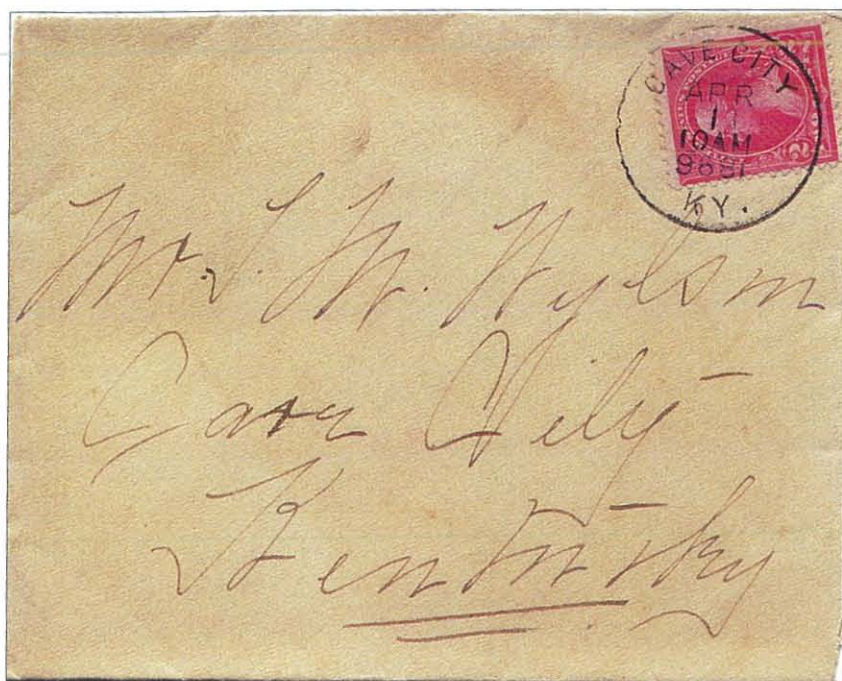 CAVE CITY
APR
11
10AM
9681
KY.
2
Mr. S. M. Wylson
Cave City
Kentucky